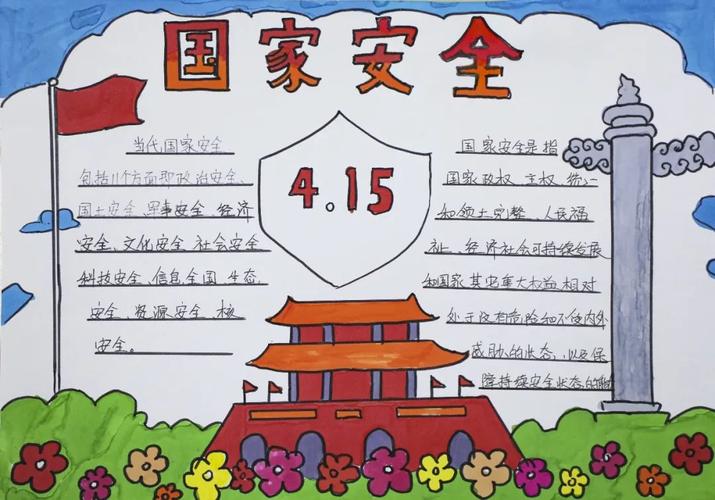 国家安全
4.15
当代国家安全
包括11个方面即政治安全、
国土安全、军事安全、经济
安全、文化安全、社会安全
科技安全、信息全国、生态
安全、资源安全、核
安全。
国家安全是指
国家政权、主权、统一
和领土完整、人民福
祉、经济社会可持续发展
和国家其他重大权益相对
处于没有危险和不受内外
威胁的状态，以及保
障持续安全状态的